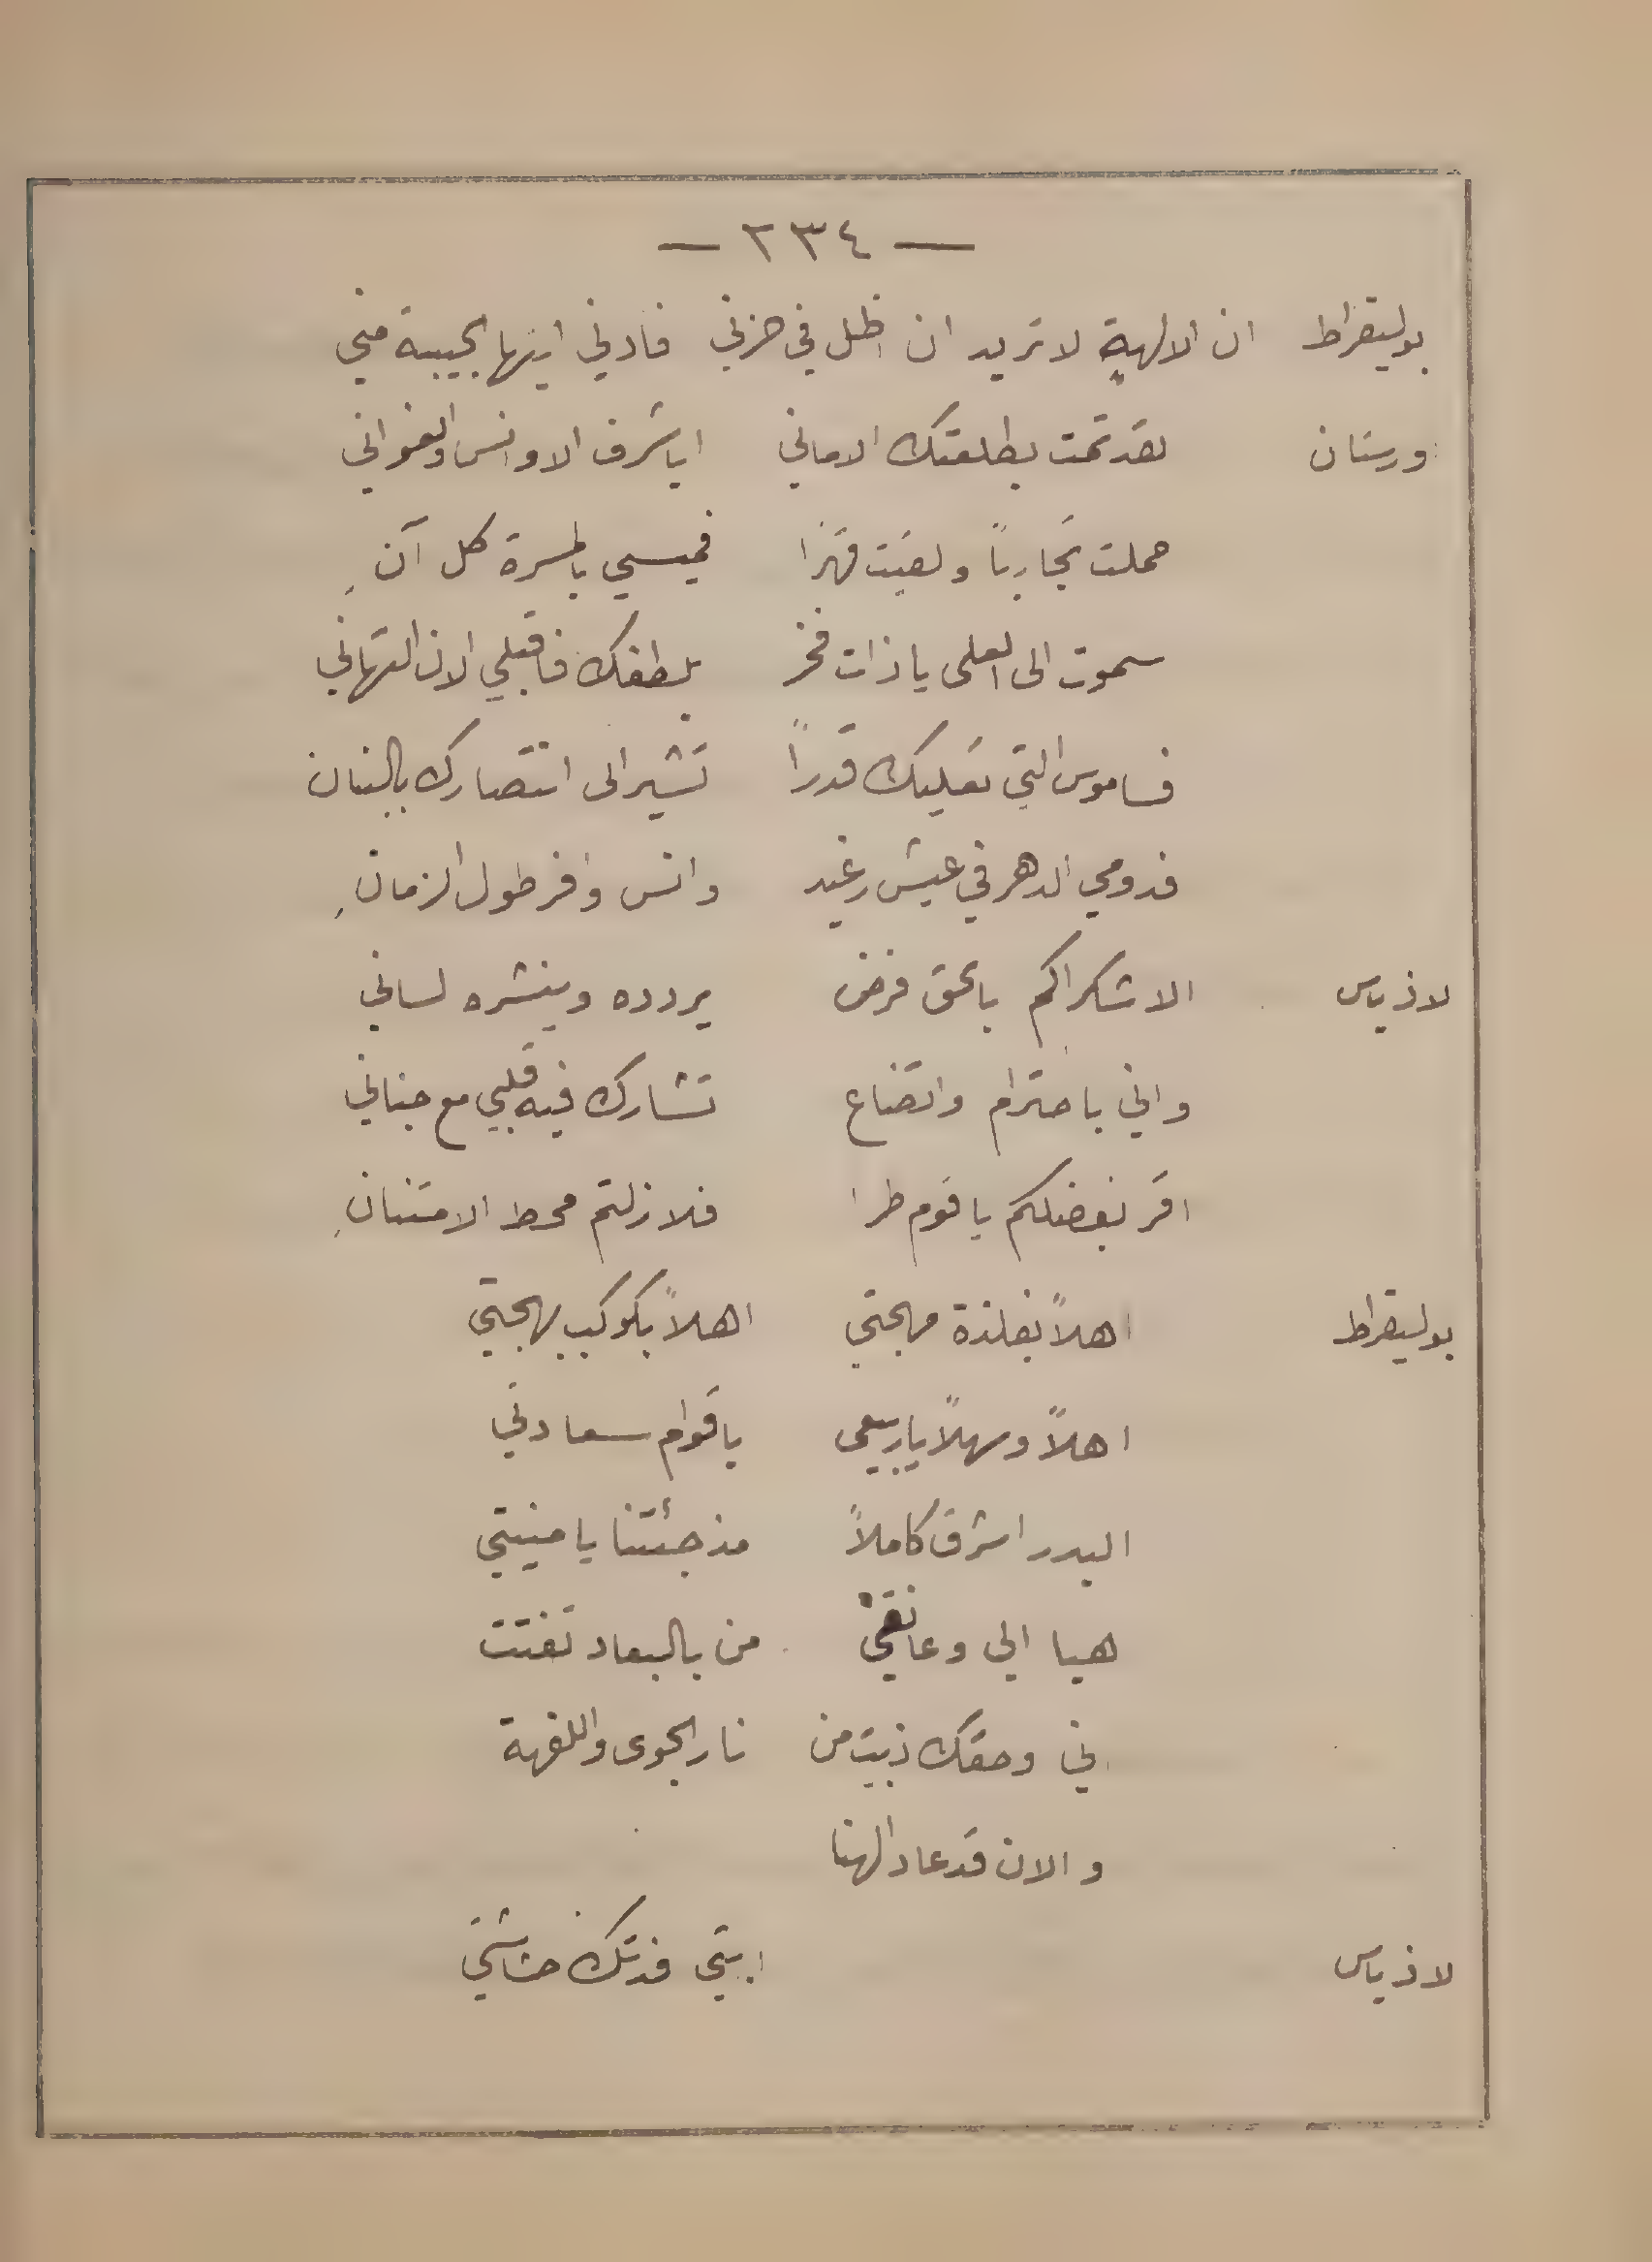 — ٢٣٤ —
بوليقراط ان الالهة لا تريد ان اظل في حزني فادني ايتها الحبيبة مني
ورستان لقد تمت بطلعتك الاماني ايا شرف الاوانس والغواني
حملت تجارباً ولقيت قهرا فميسي بالمسرة كل آنِ
سموت الى العلى يا ذات فخر بلطفك فاقبلي الان التهاني
فساموس التي تعليك قدراً تشير الى انتصارك بالبنان
فدومي الدهر في عيش رغيد وانس وافر طول الزمانِ
لاذياس الا شكراكم بالحق فرض يردده وينشره لساني
واني باحترام واتضاع تشارك فيه قلبي مع جناني
اقر بفضلكم يا قوم طرا فلا زلتم محط الامتنانِ
بوليقراط اهلاً بفلذة مهجتي اهلاً بكوكب بهجتي
اهلاً وسهلاً يا ربيعي يا قوام سعادتي
البدر اشرق كاملاً مذ جئتنا يا منيتي
هيا الي وعانقي من بالبعاد تفتت
اني وحقك ذبت من نار الجوى واللهفة
والان قد عاد الهنا
لاذياس ابتي فدتك حشاشتي